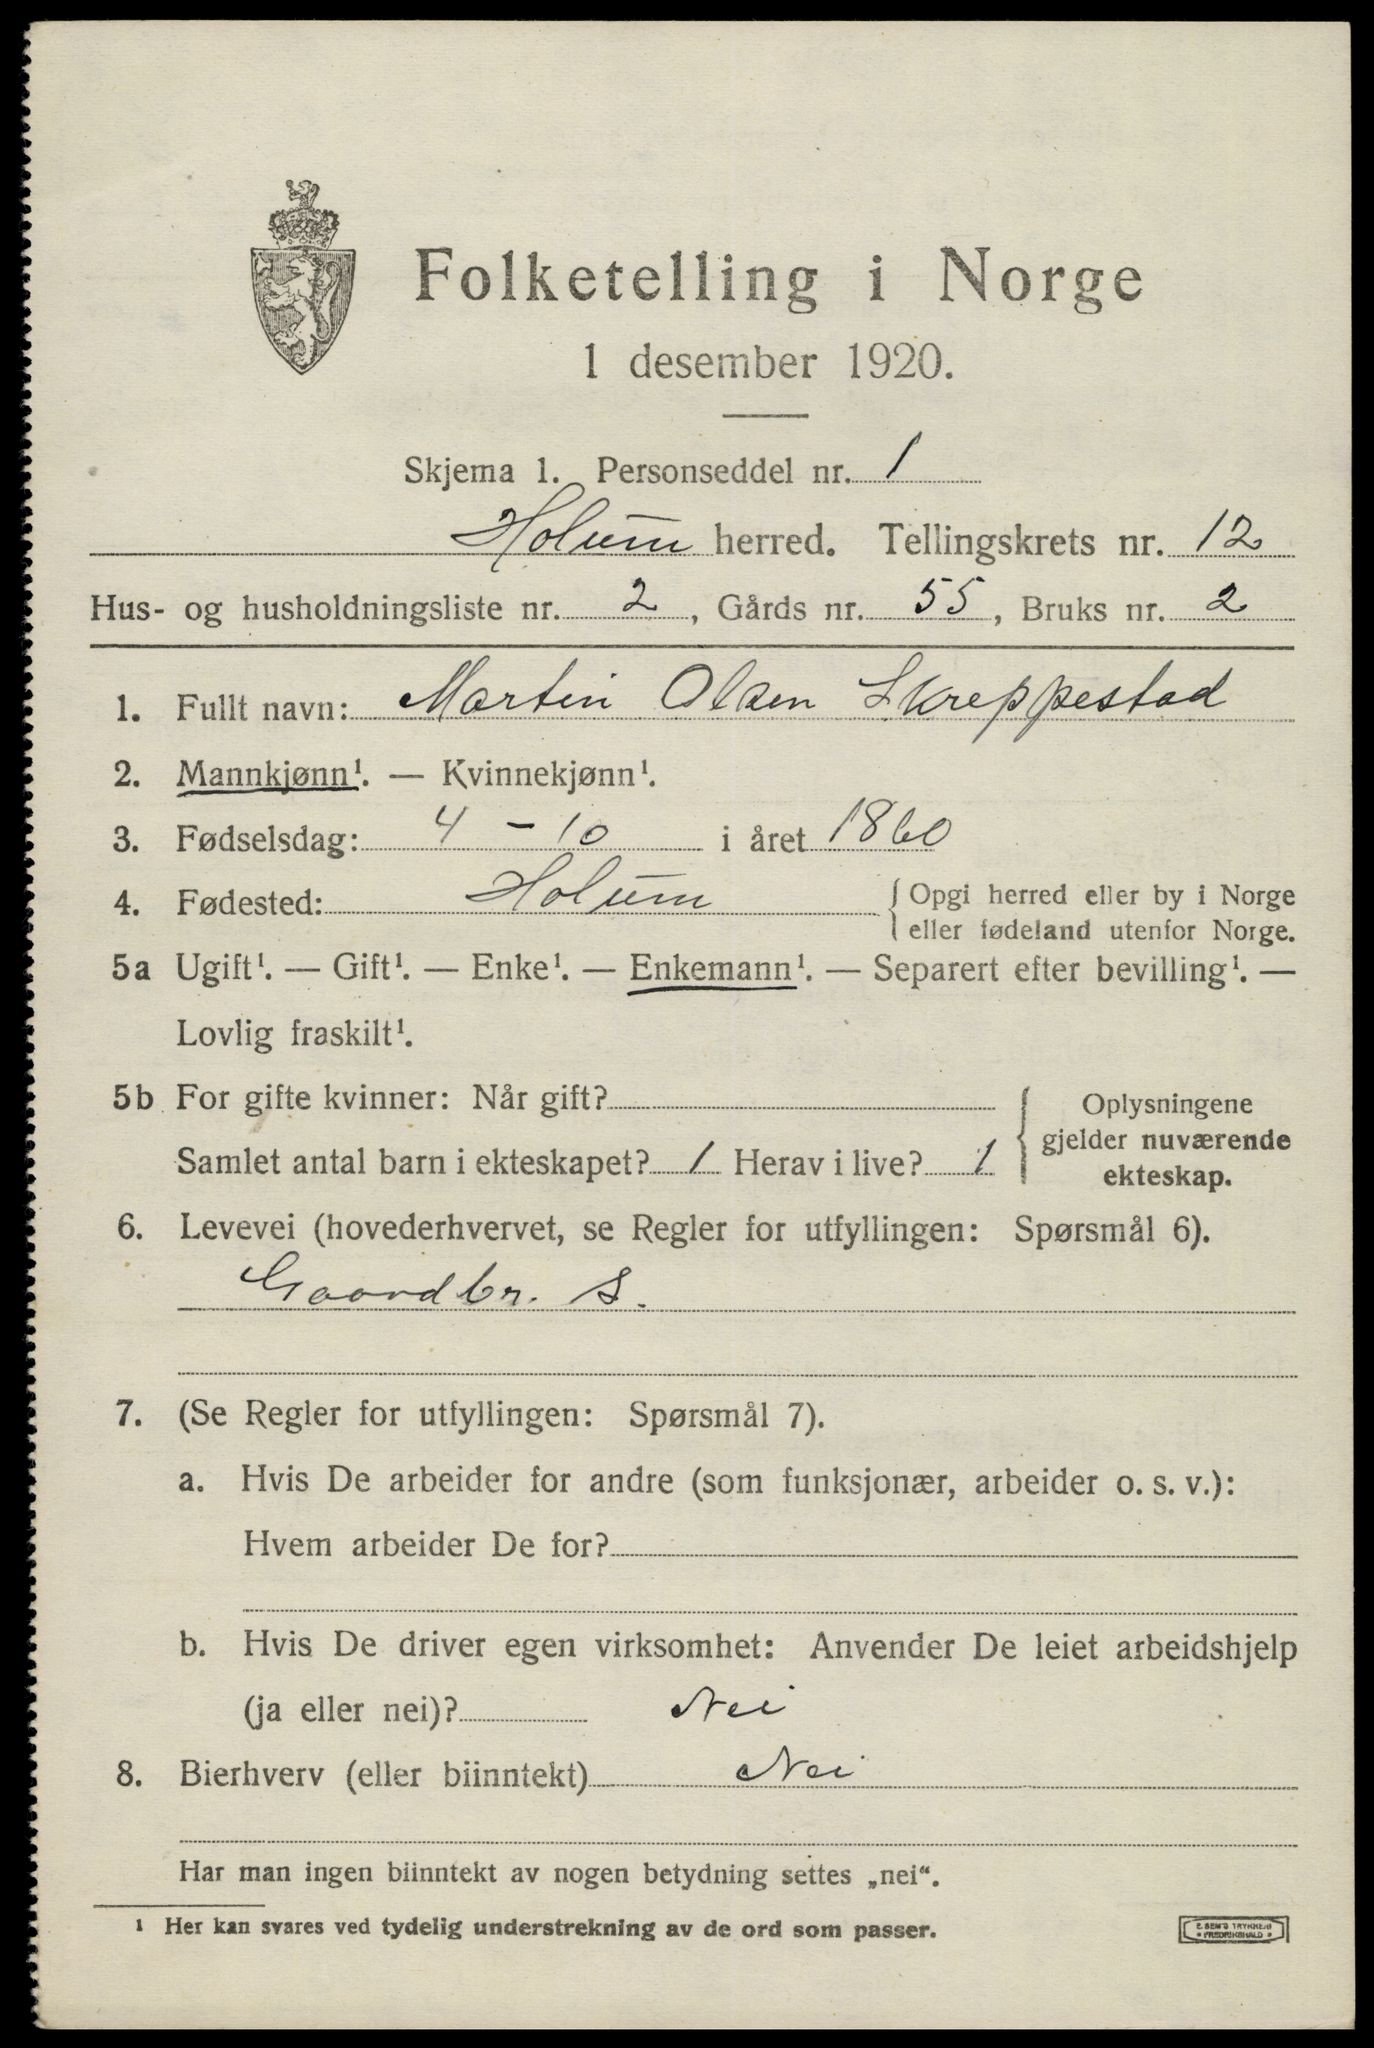 Folketelling i Norge
1 desember 1920.
Skjema 1. Personseddel nr. 1
Holum herred. Tellingskrets nr. 12
Hus- og husholdningsliste nr. 2, Gårds nr. 55, Bruks nr. 2
1. Fullt navn: Martin Olsen Skreppestad
2. Mannkjønn¹. — Kvinnekjønn¹.
3. Fødselsdag: 4 - 10 i året 1860
4. Fødested: Holum { Opgi herred eller by i Norge
eller fødeland utenfor Norge.
5a Ugift¹. — Gift¹. — Enke¹. — Enkemann¹. — Separert efter bevilling¹. —
Lovlig fraskilt¹.
5b For gifte kvinner: Når gift?
Samlet antal barn i ekteskapet? 1 Herav i live? 1
{ Oplysningene
gjelder nuværende
ekteskap.
6. Levevei (hovederhvervet, se Regler for utfyllingen: Spørsmål 6).
Gaardbr. S.
7. (Se Regler for utfyllingen: Spørsmål 7).
a. Hvis De arbeider for andre (som funksjonær, arbeider o. s. v.):
Hvem arbeider De for?
b. Hvis De driver egen virksomhet: Anvender De leiet arbeidshjelp
(ja eller nei)? Nei
8. Bierhverv (eller biinntekt) Nei
Har man ingen biinntekt av nogen betydning settes „nei“.
¹ Her kan svares ved tydelig understrekning av de ord som passer.
E. SEM'S TRYKKERI
* FREDRIKSHALD *